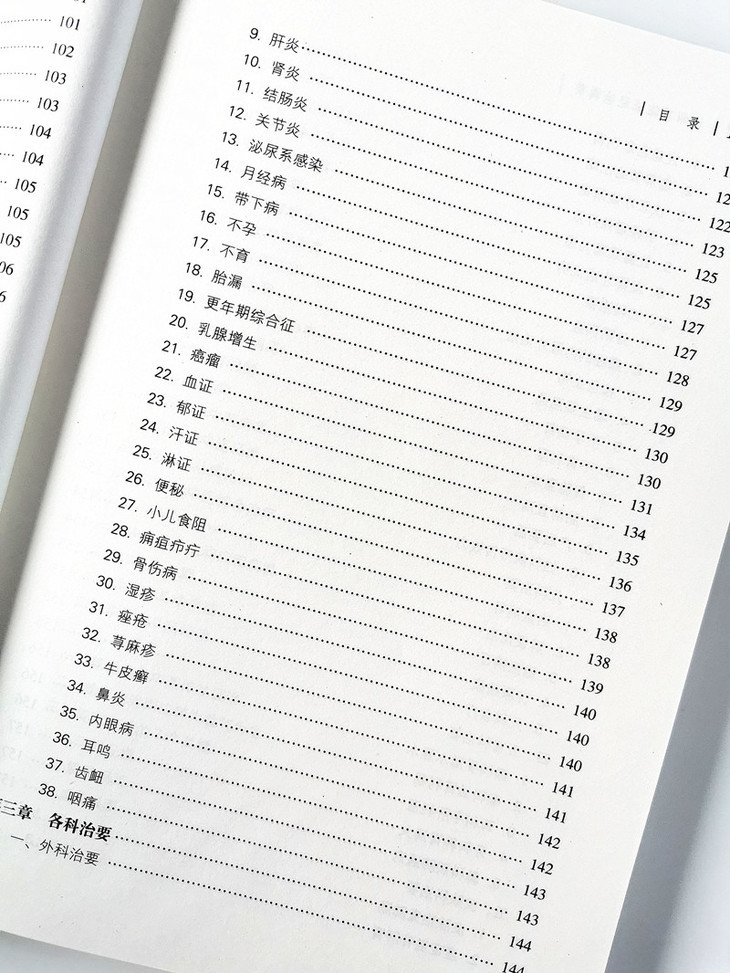 101
102
103
103
104
104
105
105
105
目 录
9. 肝炎
10. 肾炎
11. 结肠炎 122
12. 关节炎 123
13. 泌尿系感染 125
14. 月经病 125
15. 带下病 127
16. 不孕 127
17. 不育 128
18. 胎漏 129
19. 更年期综合征 129
20. 乳腺增生 130
21. 癌瘤 130
22. 血证 131
23. 郁证 134
24. 汗证 135
25. 淋证 136
26. 便秘 137
27. 小儿食阻 138
28. 痈疽疖疔 138
29. 骨伤病 139
30. 湿疹 140
31. 痤疮 140
32. 荨麻疹 140
33. 牛皮癣 141
34. 鼻炎 141
35. 内眼病 142
36. 耳鸣 142
37. 齿衄 143
38. 咽痛 143
三章 各科治要 144
一、外科治要 144